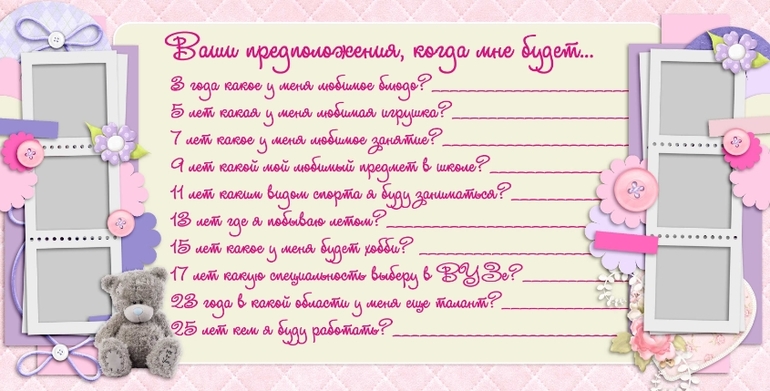 Ваши предположения, когда мне будет...
3 года какое у меня любимое блюдо?
5 лет какая у меня любимая игрушка?
7 лет какое у меня любимое занятие?
9 лет какой мой любимый предмет в школе?
11 лет каким видом спорта я буду заниматься?
13 лет где я побываю летом?
15 лет какое у меня будет хобби?
17 лет какую специальность выберу в ВУЗе?
23 года в какой области у меня еще талант?
25 лет кем я буду работать?